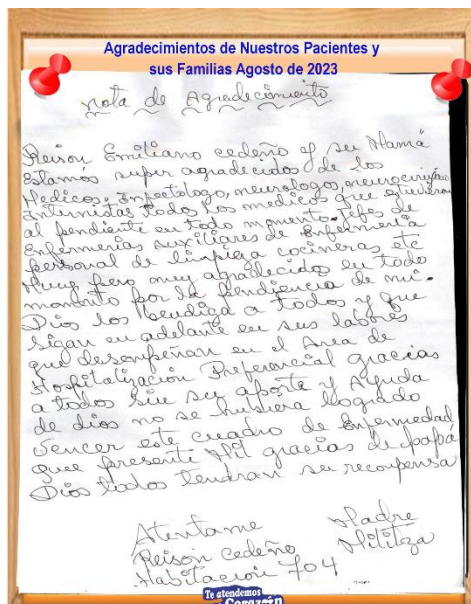 Agradecimientos de Nuestros Pacientes y
sus Familias Agosto de 2023
nota de Agradecimiento
Reison Emiliano cedeño y su Mamá
Estamos super agradecidos de los
Medicos, Infectologo, neurologos, neurocirujano
Internistas todos los medicos que estuvieron
al pendiente en todo momento. Jefes de
Enfermerias auxiliares de Enfermeria
personal de limpieza cocineras etc
Muy pero muy agradecidos en todo
momento por la pendiencia de mi.
Dios los bendiga a todos y que
sigan en adelante en sus labores
que desempeñan en el Area de
Hospitalización Preferencial gracias
a todos sin su aporte y Ayuda
de dios no se hubiera logrado
Vencer este cuadro de Enfermedad
que presente Mil gracias de papá
Dios todos tendran su recompensa
Atentame Madre
Reison Cedeño Militza
Habitacion 704
Te atendemos
Corazón